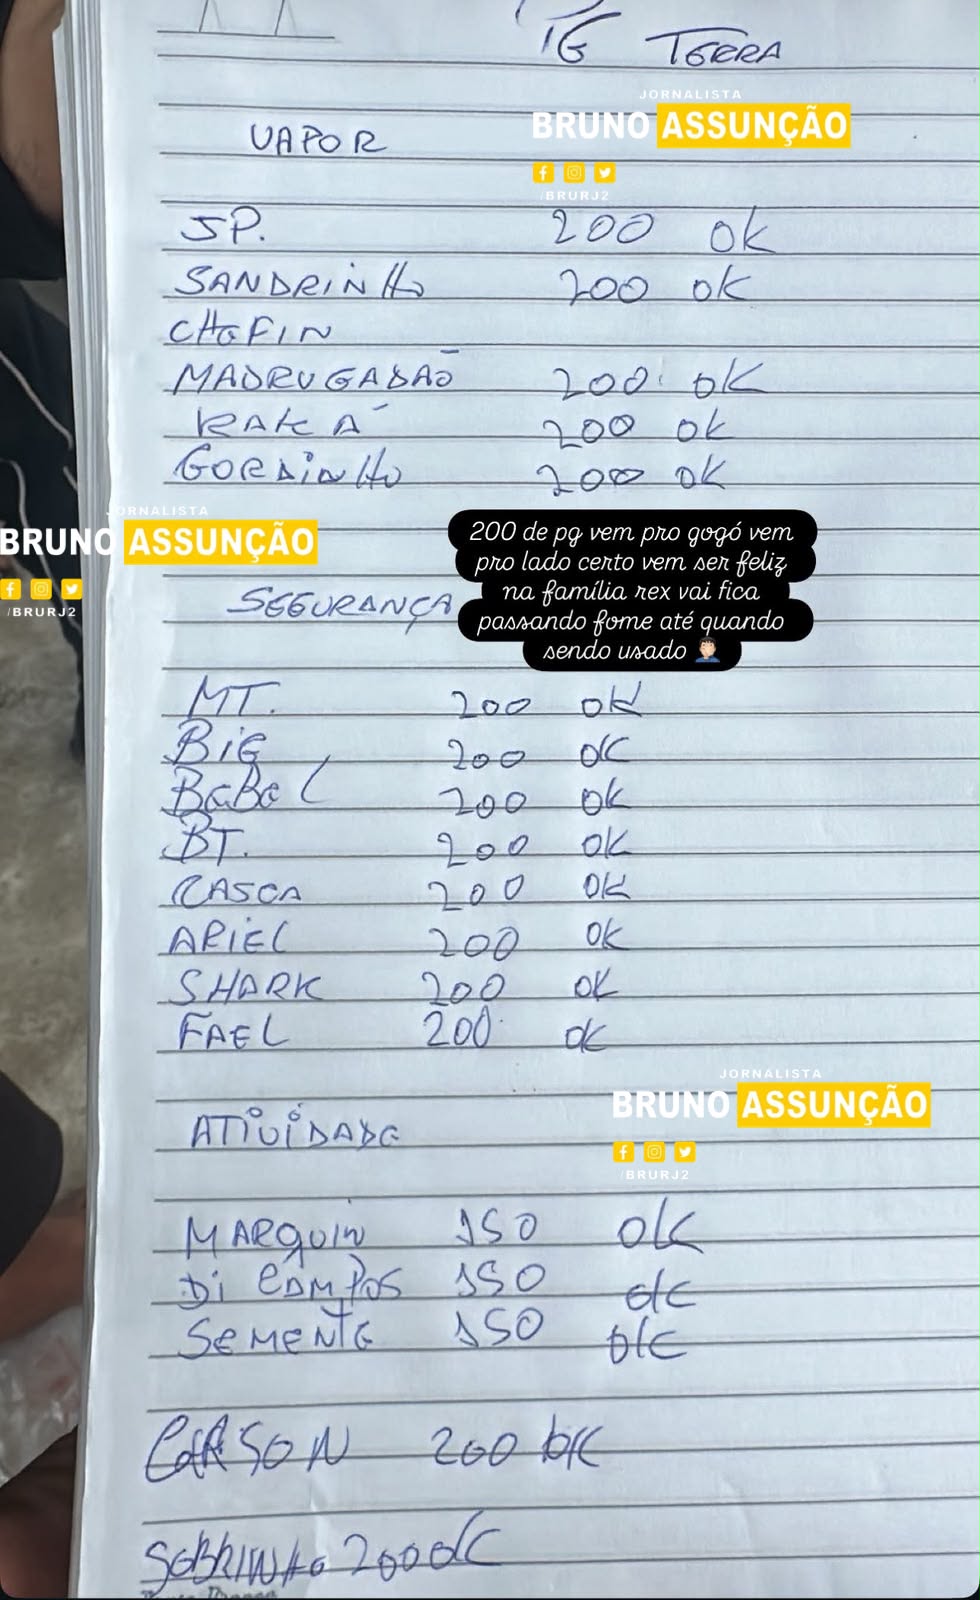 TG TERRA
JORNALISTA
BRUNO ASSUNÇÃO
/BRURJ2
VAPOR
JP. 200 OK
SANDRINHO 200 OK
CHEFIN
MADRUGADÃO 200 OK
KAKÁ 200 OK
GORDINHO 200 OK
JORNALISTA
BRUNO ASSUNÇÃO
/BRURJ2
200 de pg vem pro gogó vem
pro lado certo vem ser feliz
na família rex vai fica
passando fome até quando
sendo usado 🤦🏻‍♂️
SEGURANÇA
MT. 200 OK
BIG 200 OK
BABEL 200 OK
BT. 200 OK
CASCA 200 OK
ARIEL 200 OK
SHARK 200 OK
FAEL 200 OK
JORNALISTA
BRUNO ASSUNÇÃO
/BRURJ2
ATIVIDADE
MARQUIN 150 OK
DI CAMPOS 150 OK
SEMENTE 150 OK
CARSON 200 OK
SOBRINHO 200 OK